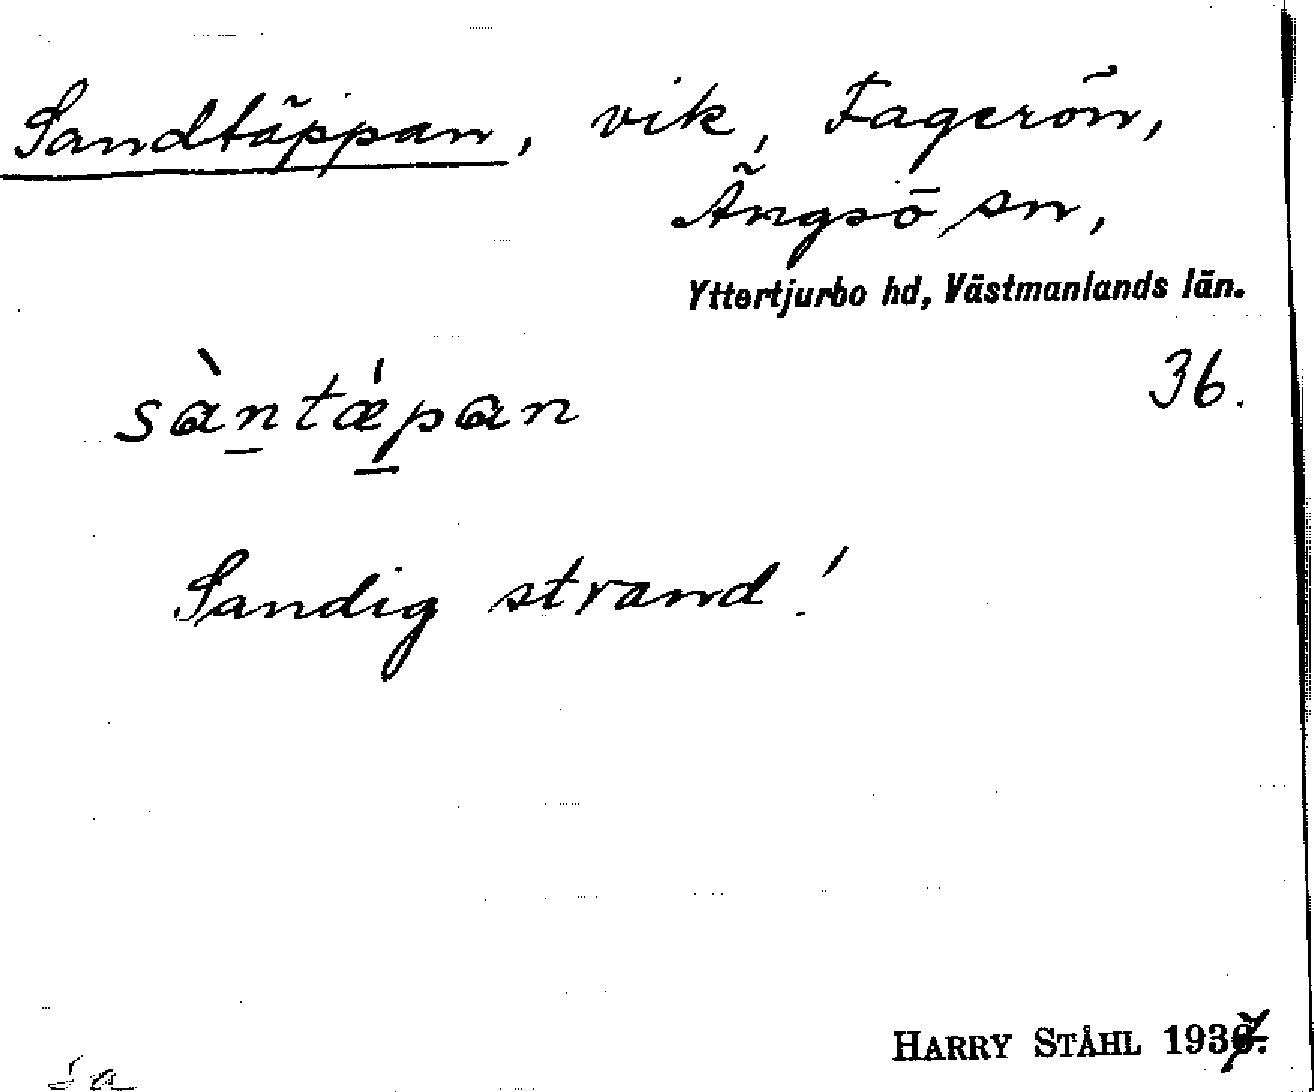 Sandtäppan, vik, Fagerön,
Ängsö sn,
Yttertjurbo hd, Västmanlands län.
sàntǽpan 36.
Sandig strand!
HARRY STÅHL 1937.